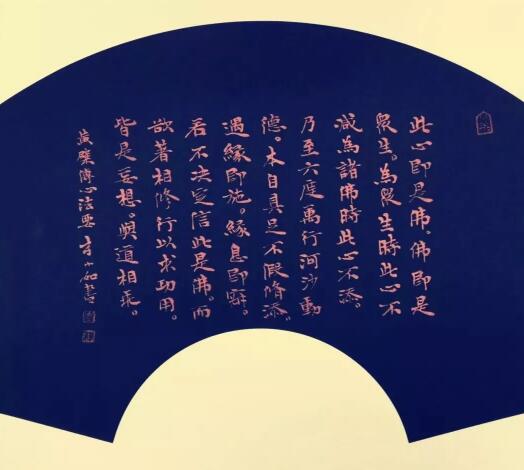 此心即是佛。佛即是
衆生。為衆生時此心不
減為諸佛時此心不添。
乃至六度萬行河沙動
德。本自具足不假脩添。
遇緣即施。緣息即寂。
若不決定信此是佛。而
欲著相修行以求功用。
皆是妄想。與道相乖。
黄檗傳心法要 書